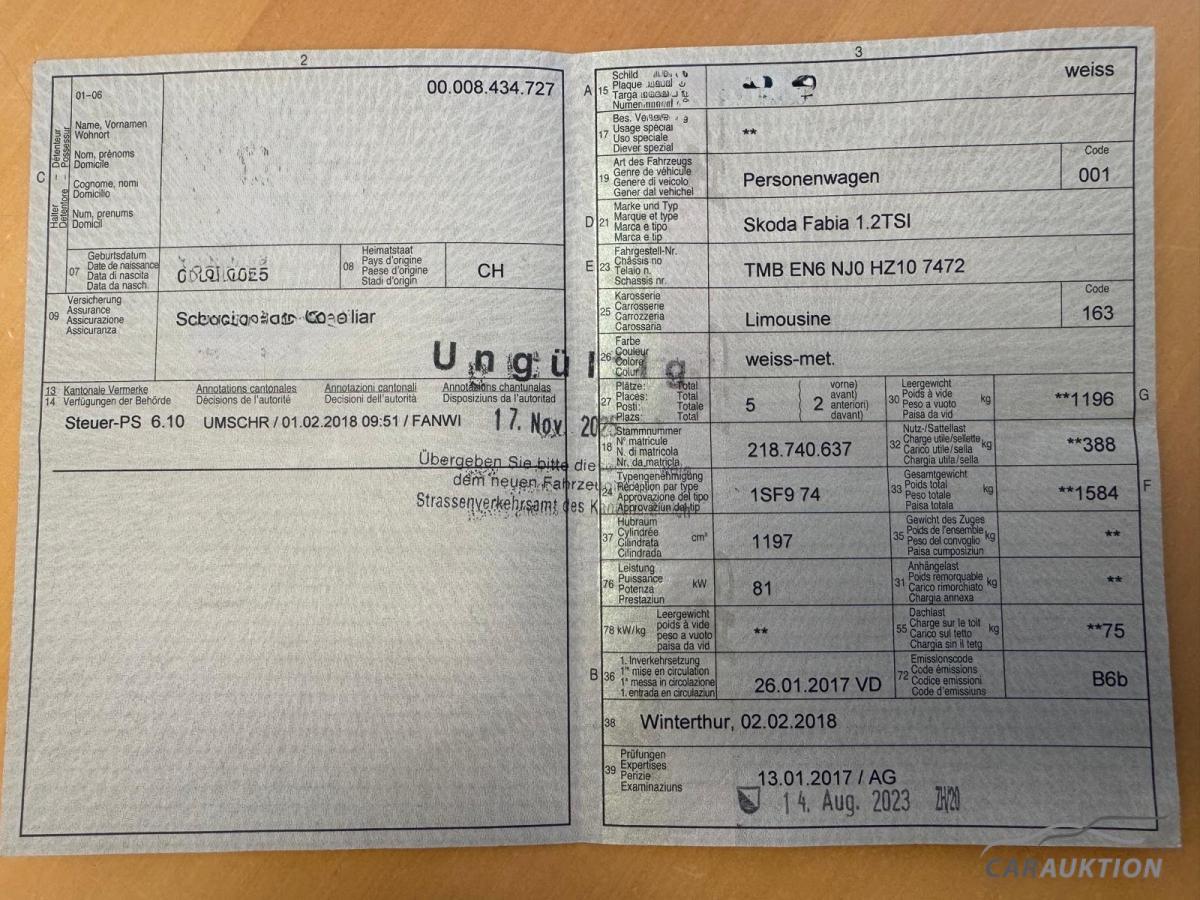 2
00.008.434.727
01-06
C
Halter – Détenteur
Detentore – Possessur
Name, Vornamen
Wohnort
Nom, prénoms
Domicile
Cognome, nomi
Domicilio
Num, prenums
Domicil
07
Geburtsdatum
Date de naissance
Data di nascita
Data da nasch.
08
Heimatstaat
Pays d'origine
Paese d'origine
Stadi d'origin
CH
09
Versicherung
Assurance
Assicurazione
Assicuranza
Ungültig
13 Kantonale Vermerke
14 Verfügungen der Behörde
Annotations cantonales
Décisions de l'autorité
Annotazioni cantonali
Decisioni dell'autorità
Annotaziuns chantunalas
Disposiziuns da l'autoritad
Steuer-PS 6.10 UMSCHR / 01.02.2018 09:51 / FANWI
17. Nov.
Übergeben Sie bitte
dem neuen
Strassenverkehrsamt des
3
A 15
Schild
Plaque
Targa
Numer
weiss
17
Bes.
Usage spécial
Uso speciale
Diever spezial
**
19
Art des Fahrzeugs
Genre de véhicule
Genere di veicolo
Gener dal vehichel
Personenwagen
Code
001
D 21
Marke und Typ
Marque et type
Marca e tipo
Marca e tip
Skoda Fabia 1.2TSI
E 23
Fahrgestell-Nr.
Châssis no
Telaio n.
Schassis nr.
TMB EN6 NJ0 HZ10 7472
25
Karosserie
Carrosserie
Carrozzeria
Carossaria
Limousine
Code
163
26
Farbe
Couleur
Colore
Colur
weiss-met.
27
Plätze: Total
Places: Total
Posti: Totale
Plazs: Total
5
( 2
vorne)
avant)
anteriori)
davant)
30
Leergewicht
Poids à vide
Peso a vuoto
Paisa da vid
kg
**1196
G
18
Stammnummer
N° matricule
N. di matricola
Nr. da matricla
218.740.637
32
Nutz-/Sattellast
Charge utile/sellette
Carico utile/sella
Chargia utila/sella
kg
**388
24
Typengenehmigung
Réception par type
Approvazione del tipo
Approvaziun del tip
1SF9 74
33
Gesamtgewicht
Poids total
Peso totale
Paisa totala
kg
**1584
F
37
Hubraum
Cylindrée
Cilindrata
Cilindrada
cm³
1197
35
Gewicht des Zuges
Poids de l'ensemble
Peso del convoglio
Paisa cumposiziun
kg
**
76
Leistung
Puissance
Potenza
Prestaziun
kW
81
31
Anhängelast
Poids remorquable
Carico rimorchiato
Chargia annexa
kg
**
78 kW/kg
Leergewicht
poids à vide
peso a vuoto
paisa da vid
**
55
Dachlast
Charge sur le toit
Carico sul tetto
Chargia sin il tetg
kg
**75
B 36
1. Inverkehrsetzung
1re mise en circulation
1a messa in circolazione
1. entrada en circulaziun
26.01.2017 VD
72
Emissionscode
Code émissions
Codice emissioni
Code d'emissiuns
B6b
38
Winterthur, 02.02.2018
39
Prüfungen
Expertises
Perizie
Examinaziuns
13.01.2017 / AG
14. Aug. 2023 ZH/20
CARAUKTION